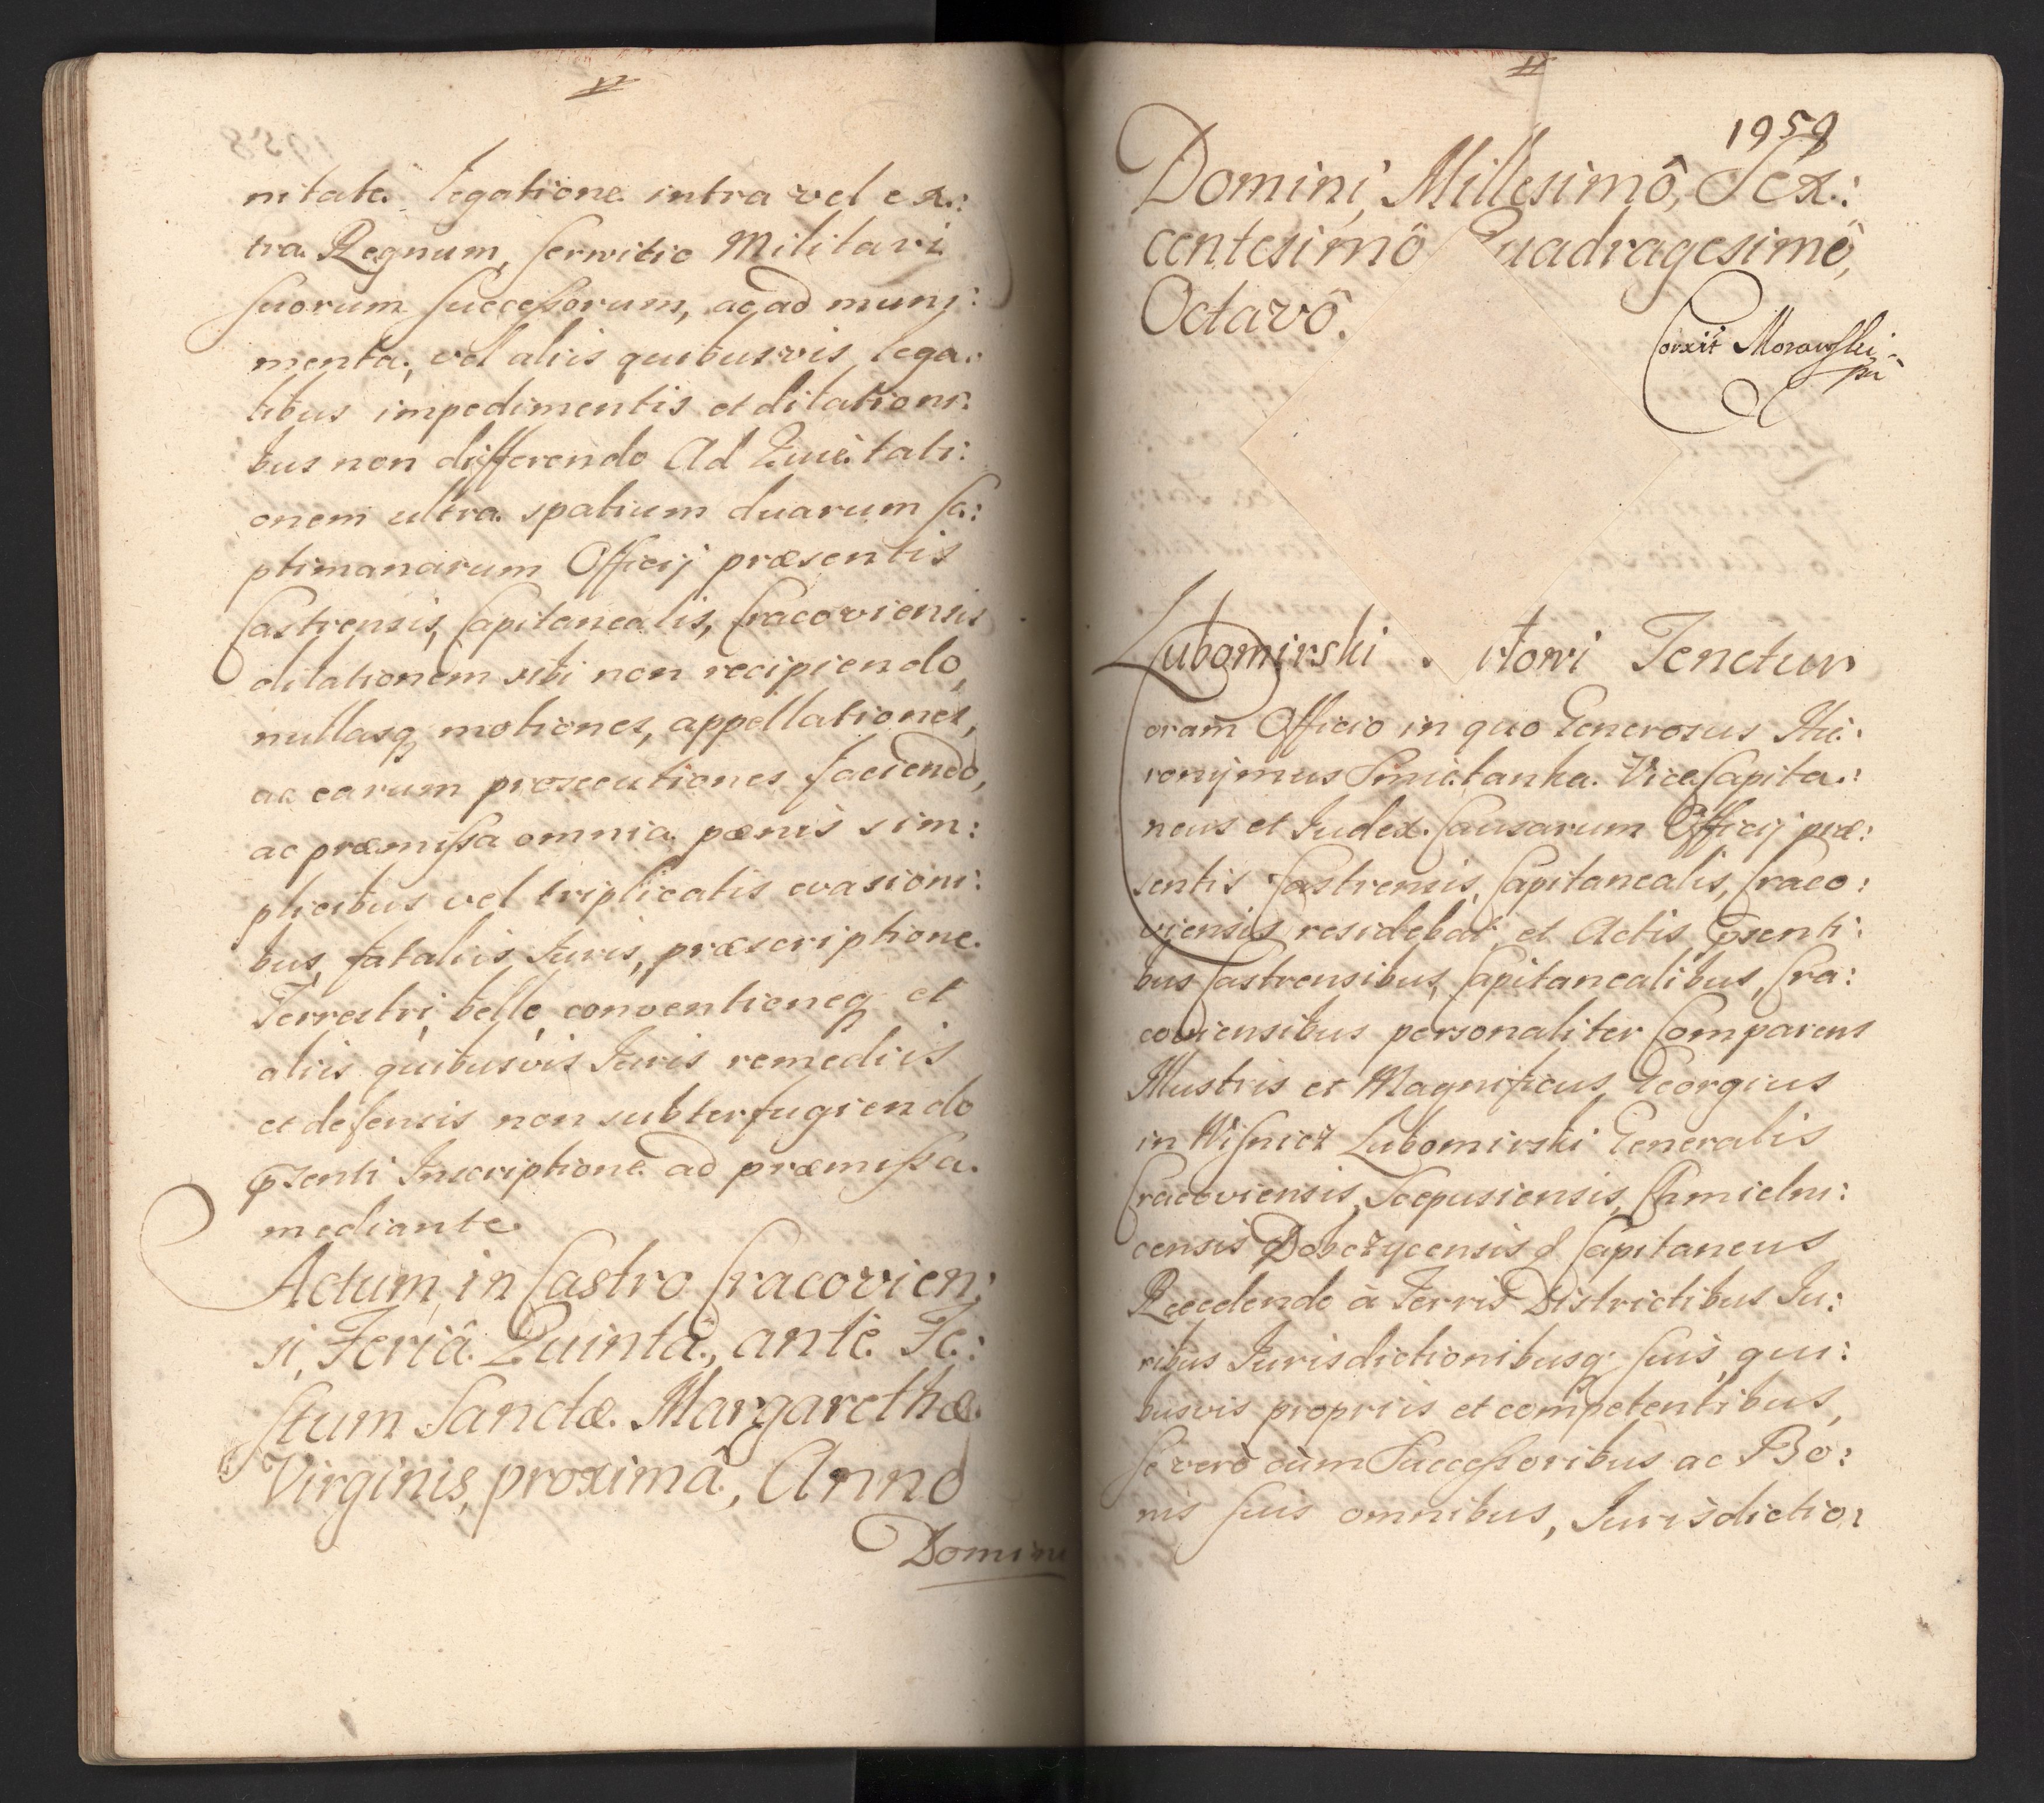 nitate legatione intra vel ex:
tra Regnum, servitio Militari
suorum successorum, ac ad muni:
menta, vel aliis quibusvis lega:
libus impedimentis et dilationi:
bus non differendo Ad Euictati:
onem ultra spatium duarum se:
ptimanarum Officij præsentis
Castrensis, Capitanealis, Cracoviensis
dilationem sibi non recipiendo,
nullasq motiones, appellationes,
ac earum prosecutiones faciendo,
ac præmissa omnia pœnis sim:
plicibus vel triplicatis evasioni:
bus, fataliis Juris, præscriptione
Terrestri, bello, conventioneq et
aliis quibusvis Juris remediis
et defensis non subterfugiendo
psenti Inscriptione ad præmissa
mediante
Actum in Castro Cracovien:
si, Feriâ Quintâ, ante Fe:
stum Sanctæ Margarethæ
Virginis, proximâ, Anno
Domini
1959
Domini, Millesimô, Sex:
centesimô Quadragesimô,
Octavô.
Corxit Morawski
Lubomirski ctori Tenetur
oram Officio in quo Generosus Hie:
ronymus Smietanka Vice Capita:
neus et Judex Causarum Officij præ:
sentis Castrensis, Capitanealis, Craco:
viensis residebat, et Actis psenti:
bus Castrensibus, Capitanealibus, Cra:
coviensibus personaliter Comparens
Illustris et Magnificus Georgius
in Wisnicz Lubomirski Generalis
Cracoviensis, Scepusiensis, Chmielni:
censis Dobczycensis & Capitaneus
Recedendo à Terris Districtibus Ju:
ribus Jurisdictionibusq suis qui:
busvis propriis et competentibus,
se verò cùm Successoribus ac Bo:
nis suis omnibus, Jurisdictio: